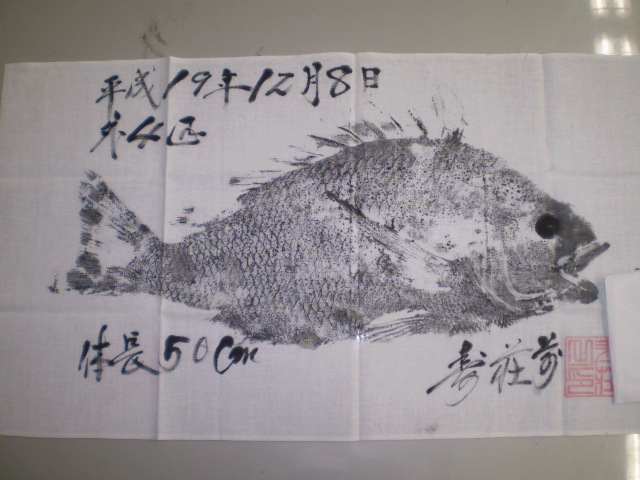 平成19年12月8日
外4匹
体長50Cm
寿荘前